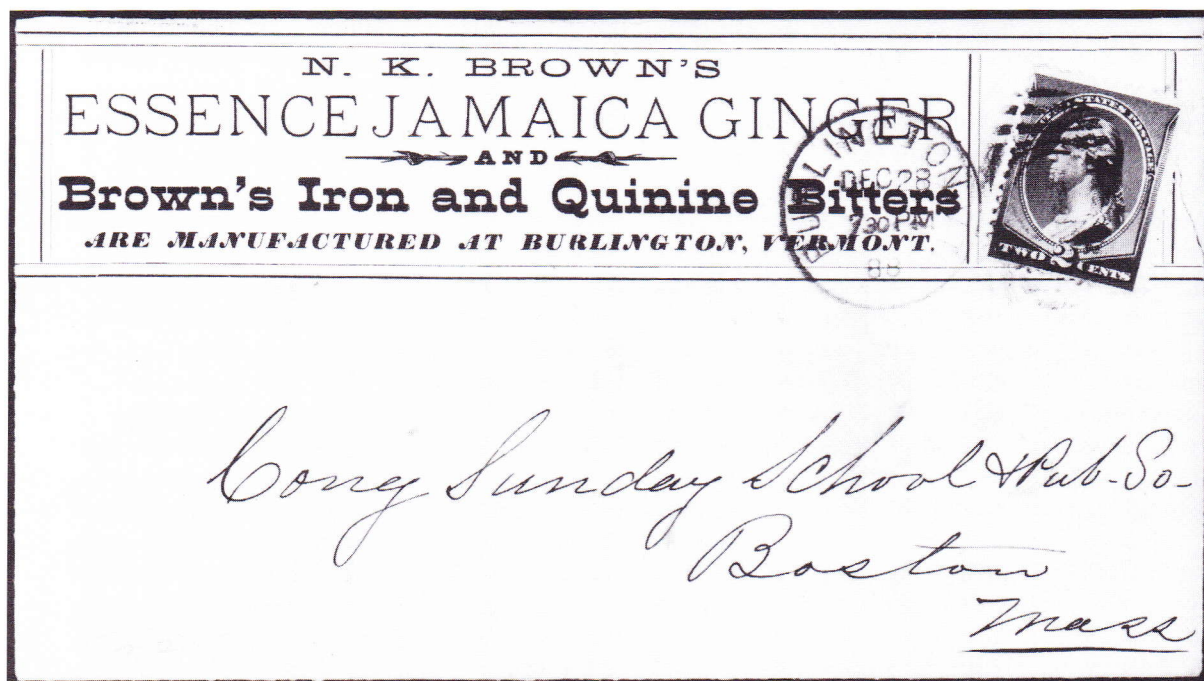 N. K. BROWN'S
ESSENCE JAMAICA GINGER
AND
Brown's Iron and Quinine Bitters
ARE MANUFACTURED AT BURLINGTON, VERMONT.
BURLINGTON
DEC 28
730 PM
88
UNITED STATES POSTAGE
TWO 2 CENTS
Cong Sunday School & Pub. So-
Boston
Mass